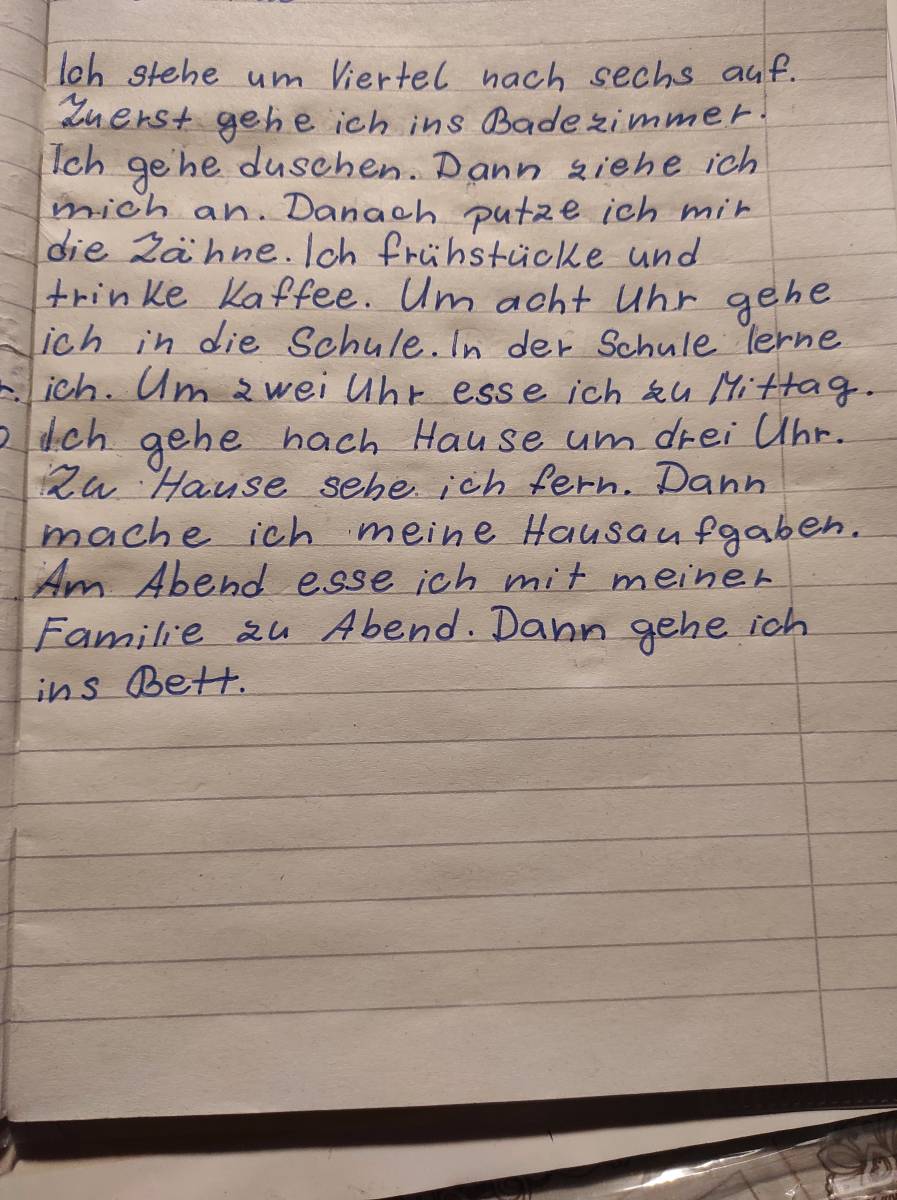 Ich stehe um Viertel nach sechs auf.
Zuerst gehe ich ins Badezimmer.
Ich gehe duschen. Dann ziehe ich
mich an. Danach putze ich mir
die Zähne. Ich frühstücke und
trinke Kaffee. Um acht Uhr gehe
ich in die Schule. In der Schule lerne
ich. Um zwei Uhr esse ich zu Mittag.
Ich gehe nach Hause um drei Uhr.
Zu Hause sehe ich fern. Dann
mache ich meine Hausaufgaben.
Am Abend esse ich mit meiner
Familie zu Abend. Dann gehe ich
ins Bett.